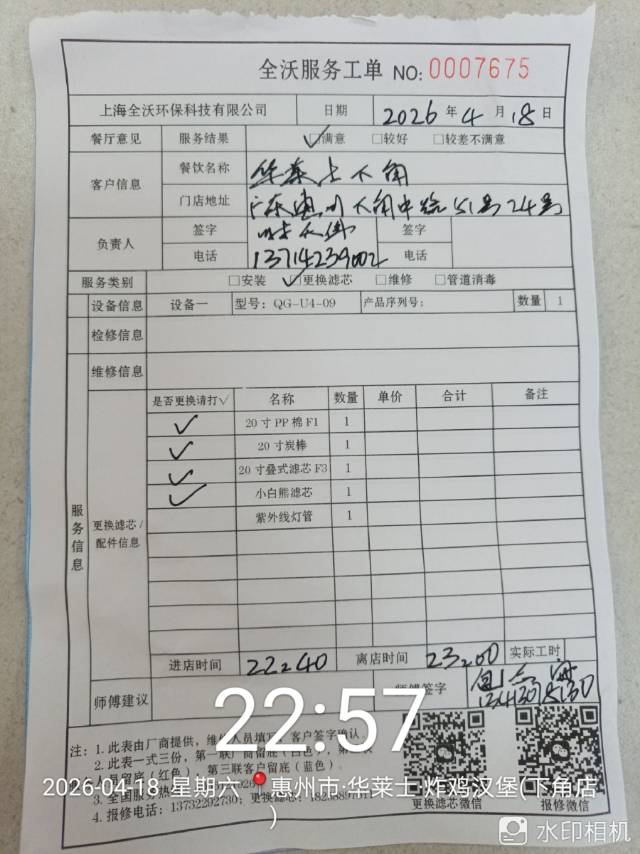 全沃服务工单 NO:0007675
上海全沃环保科技有限公司 日期 2026年4月18日
餐厅意见 服务结果 ☑满意 □较好 □较差不满意
客户信息 餐饮名称 华莱士下角
门店地址 广东惠州下角中路51号24号
负责人 签字 签字
电话 13714239002 电话
服务类别 □安装 ☑更换滤芯 □维修 □管道消毒
设备信息 设备一 型号：QG-U4-09 产品序列号： 数量 1
检修信息
维修信息
服务信息
更换滤芯/配件信息
是否更换请打√ 名称 数量 单价 合计 备注
✓ 20寸PP棉F1 1
✓ 20寸炭棒 1
✓ 20寸叠式滤芯F3 1
✓ 小白熊滤芯 1
紫外线灯管 1
进店时间 22:40 离店时间 23:00 实际工时
师傅建议 师傅签字
22:57
注：1. 此表由厂商提供，维修人员填写，客户签字确认。
2. 此表一式三份，第一联厂商留底（白色），第二联
人员留底（红色），第三联客户留底（蓝色）。
3. 全国服务热
4. 报修电话：13732292730；更换滤芯：
更换滤芯微信 报修微信
2026-04-18 星期六 惠州市·华莱士·炸鸡汉堡(下角店
)
水印相机